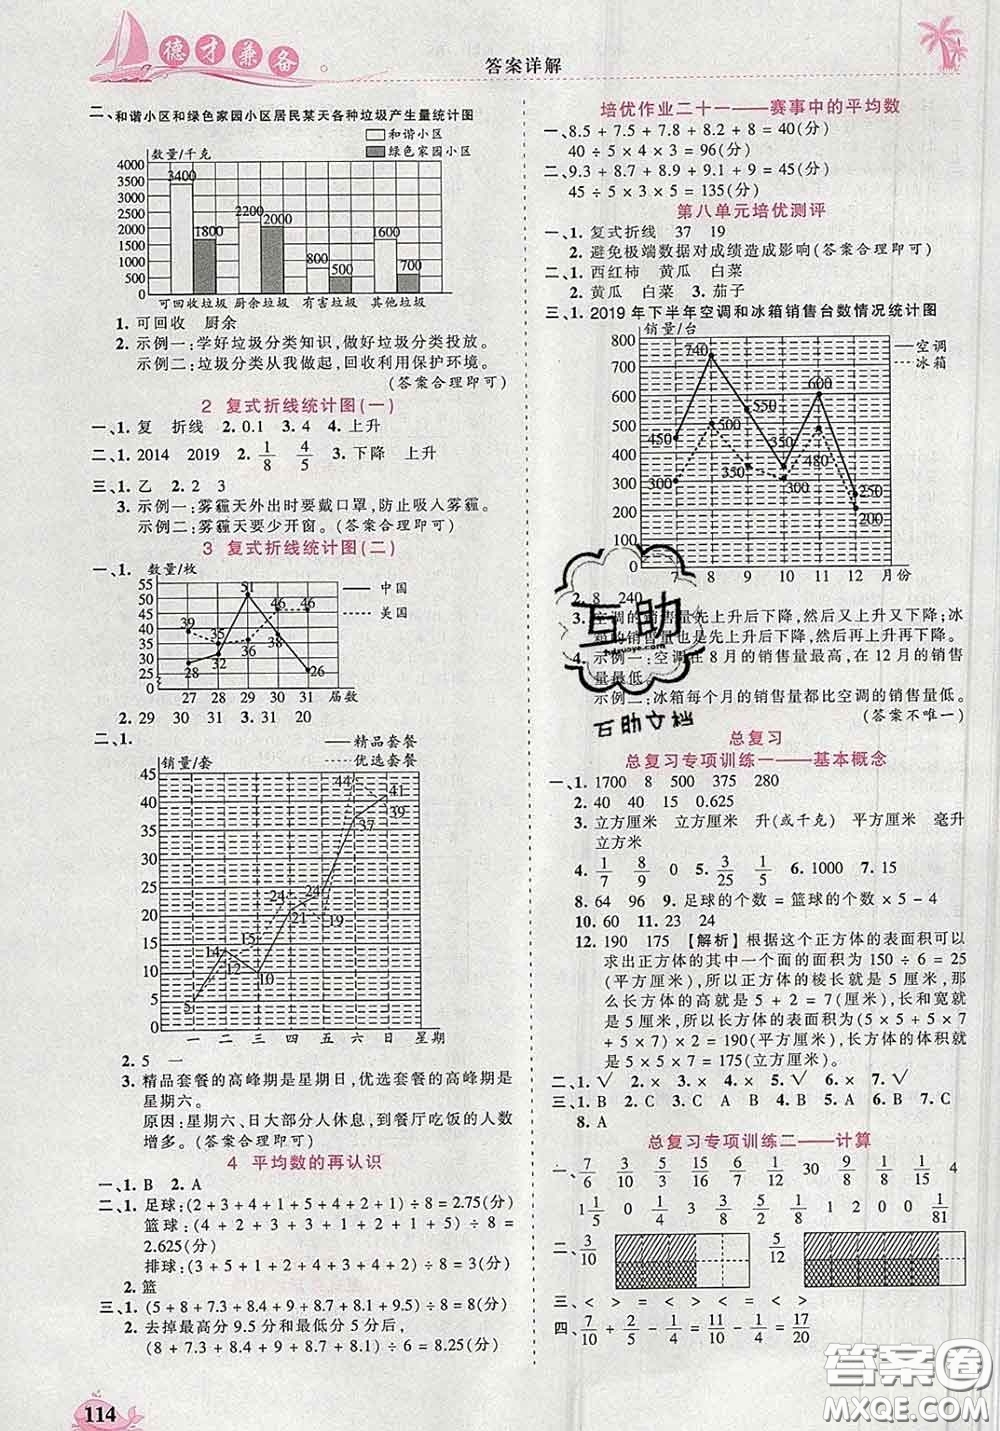 德才兼备
答案详解
二、和谐小区和绿色家园小区居民某天各种垃圾产生量统计图
数量/千克
和谐小区
绿色家园小区
4000
3500
3000
2500
2000
1500
1000
500
0
3400
1800
2200
2000
800
500
1600
700
可回收垃圾 厨余垃圾 有害垃圾 其他垃圾
1. 可回收 厨余
2. 示例一:学好垃圾分类知识,做好垃圾分类投放。
示例二:垃圾分类从我做起,回收利用保护环境。
(答案合理即可)
2 复式折线统计图(一)
一、1. 复 折线 2. 0.1 3. 4 4. 上升
二、1. 2014 2019 2. 1/8 4/5 3. 下降 上升
三、1. 乙 2. 2 3
3. 示例一:雾霾天外出时要戴口罩,防止吸入雾霾。
示例二:雾霾天要少开窗。(答案合理即可)
3 复式折线统计图(二)
一、1. 数量/枚
中国
美国
55
50
45
40
35
30
25
20
15
0
39 35 36 46 46
28 32 51 38 26
27 28 29 30 31 届数
2. 29 30 31 3. 31 20
二、1.
精品套餐
优选套餐
销量/套
45
40
35
30
25
20
15
10
5
0
5 14 10 21 24 37 41
12 15 24 19 44 39
一 二 三 四 五 六 日 星期
2. 5 一
3. 精品套餐的高峰期是星期日,优选套餐的高峰期是
星期六。
原因:星期六、日大部分人休息,到餐厅吃饭的人数
增多。(答案合理即可)
4 平均数的再认识
一、1. B 2. A
二、1. 足球:(2+3+4+1+5+4+2+1)÷8=2.75(分)
篮球:(4+2+3+3+1+2+1+5)÷8=
2.625(分)
排球:(3+1+2+5+4+2+3+4)÷8=3(分)
2. 篮
三、1. (5+8+7.3+8.4+9+8.7+8.1+9.5)÷8=8(分)
2. 去掉最高分9.5分和最低分5分后,
(8+7.3+8.4+9+8.7+8.1)÷6=8.25(分)
114
培优作业二十一——赛事中的平均数
一、8.5+7.5+7.8+8.2+8=40(分)
40÷5×4×3=96(分)
二、9.3+8.7+8.9+9.1+9=45(分)
45÷5×3×5=135(分)
第八单元培优测评
一、1. 复式折线 37 19
2. 避免极端数据对成绩造成影响(答案合理即可)
二、1. 西红柿 黄瓜 白菜
2. 黄瓜 白菜 3. 茄子
三、1. 2019年下半年空调和冰箱销售台数情况统计图
销量/台
空调
冰箱
800
700
600
500
400
300
200
100
0
450 740 550 350 600 250
300 500 350 300 480 200
7 8 9 10 11 12 月份
2. 8 240
3. 空调的销售量先上升后下降,然后又上升又下降;冰
箱的销售量也是先上升后下降,然后再上升再下降。
4. 示例一:空调在8月的销售量最高,在12月的销售
量最低。
示例二:冰箱每个月的销售量都比空调的销售量低。
(答案不唯一)
总复习
总复习专项训练一——基本概念
一、1. 1700 8 500 375 280
2. 40 40 15 0.625
3. 立方厘米 立方厘米 升(或千克) 平方厘米 毫升
立方米
4. 1/7 8/9 0 5. 3/25 1/5 6. 1000 7. 15
8. 64 96 9. 足球的个数=篮球的个数×5-4
10. 60 11. 23 24
12. 190 175 【解析】根据这个正方体的表面积可以
求出正方体的其中一个面的面积为150÷6=25
(平方厘米),所以正方体的棱长就是5厘米,那
么长方体的高就是5+2=7(厘米),长和宽就
是5厘米,所以长方体的表面积为(5×5+5×7
+5×7)×2=190(平方厘米),体积为
5×5×7=175(立方厘米)。
二、1. √ 2. × 3. × 4. × 5. √ 6. √ 7. ×
三、1. B 2. C 3. A 4. C 5. A 6. B 7. C
8. A
总复习专项训练二——计算
一、7/6 3/10 2/15 1/12 30 9/8 1/15 4
1 1/5 0 3 3/8 1 2 0 0 1/81
二、3/10 5/12
三、< > < > = <
四、7/10+2/5-1/4=11/10-1/4=17/20
互助
互助文档
答案圈
MXQE.COM